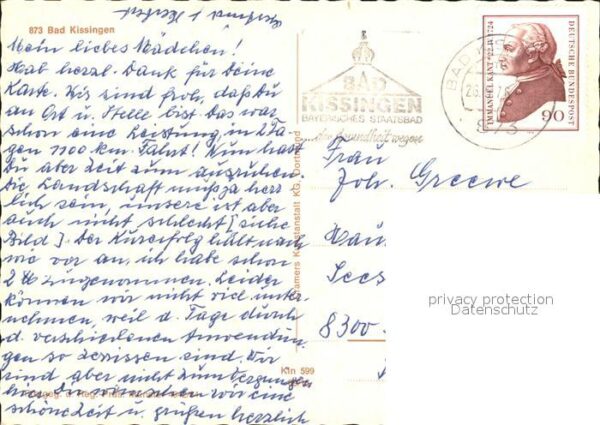 873 Bad Kissingen
Mein liebes Mädchen!
Hab herzl. Dank für Deine
Karte. Wir sind froh, daß Du
an Ort u. Stelle bist. Das war
schon eine Leistung, in 2 Ta-
gen 1100 km. Fahrt! Nun hast
Du aber Zeit zum ausruhen.
Die Landschaft muß ja herr
lich sein, unsere ist aber
auch nicht schlecht [siehe
Bild]. Der Kurerfolg hält nach
wie vor an, ich habe schon
2 ℔ zugenommen. Leider
können wir nicht viel unter-
nehmen, weil d. Tage durch
d. verschiedenen Anwendun
gen so zerrissen sind. Wir
sind aber nicht zum Vergnügen
hier. wünschen wir eine
schöne Zeit u. grüßen herzlich
Cramers Kunstanstalt KG, Dortmund
Kin 599
BAD
KISSINGEN
BAYERISCHES STAATSBAD
der Gesundheit wegen
BAD
873
IMMANUEL KANT
1724
DEUTSCHE BUNDESPOST
90
Frau
Joh. Greewe
8300
privacy protection
Datenschutz